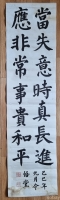 當失意時真長進
應非常事貴和平
乙巳年
九月令
悟堂